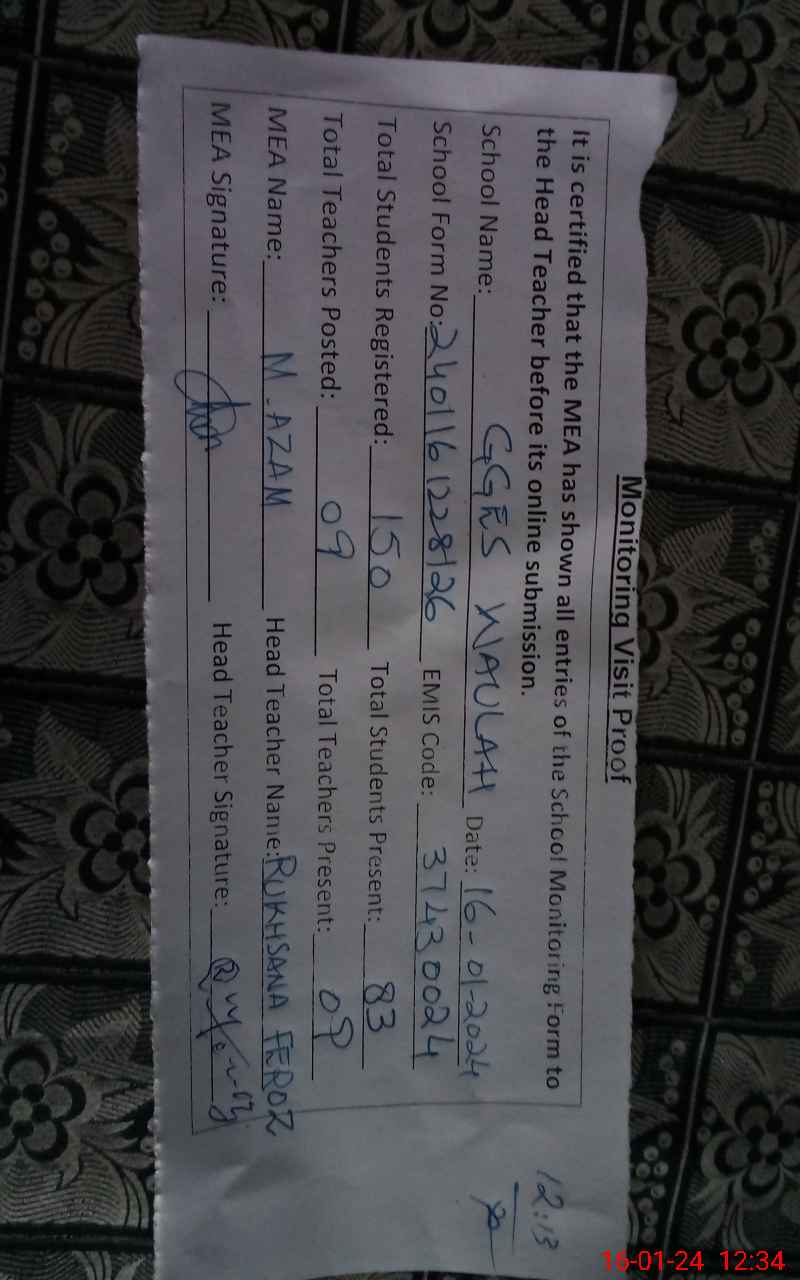 Monitoring Visit Proof
It is certified that the MEA has shown all entries of the School Monitoring Form to
the Head Teacher before its online submission.
School Name: GGES WAULAH Date: 16-01-2024
School Form No: 2401161228126 EMIS Code: 37430024
Total Students Registered: 150 Total Students Present: 83
Total Teachers Posted: 09 Total Teachers Present: 09
MEA Name: M. AZAM Head Teacher Name: RUKHSANA FEROZ
MEA Signature: Head Teacher Signature:
12:13
16-01-24 12:34